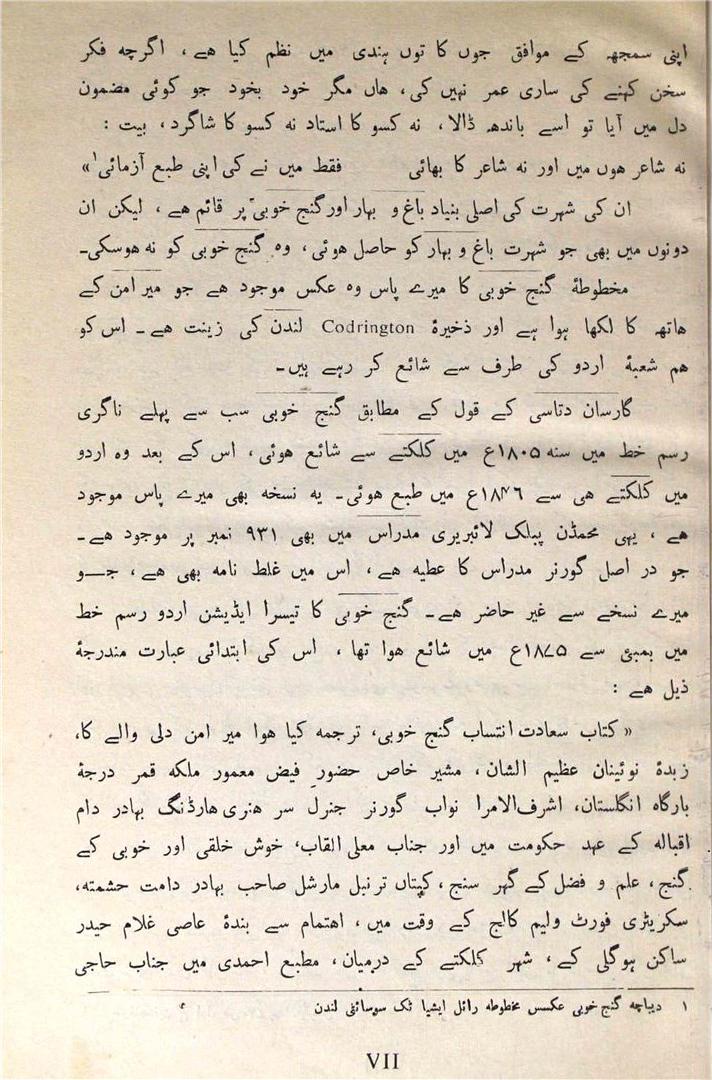 اپنی سمجھ کے موافق جوں کا توں ہندی میں نظم کیا ہے، اگرچہ فکر
سخن کہنے کی ساری عمر نہیں کی، ہاں مگر خود بخود جو کوئی مضمون
دل میں آیا تو اسے باندھ ڈالا، نہ کسو کا استاد نہ کسو کا شاگرد، بیت :
نہ شاعر ہوں میں اور نہ شاعر کا بھائی فقط میں نے کی اپنی طبع آزمائی¹»
ان کی شہرت کی اصلی بنیاد باغ و بہار اور گنج خوبی پر قائم ہے، لیکن ان
دونوں میں بھی جو شہرت باغ و بہار کو حاصل ہوئی، وہ گنج خوبی کو نہ ہوسکی۔
مخطوطۂ گنج خوبی کا میرے پاس وہ عکس موجود ہے جو میر امن کے
ہاتھ کا لکھا ہوا ہے اور ذخیرۂ Codrington لندن کی زینت ہے۔ اس کو
ہم شعبۂ اردو کی طرف سے شائع کر رہے ہیں۔
گارساں دتاسی کے قول کے مطابق گنج خوبی سب سے پہلے ناگری
رسم خط میں سنہ ۱۸۰۵ع میں کلکتے سے شائع ہوئی، اس کے بعد وہ اردو
میں کلکتے ہی سے ۱۸۴۶ع میں طبع ہوئی۔ یہ نسخہ بھی میرے پاس موجود
ہے، یہی محمڈن پبلک لائبریری مدراس میں بھی ۹۳۱ نمبر پر موجود ہے۔
جو در اصل گورنر مدراس کا عطیہ ہے، اس میں غلط نامہ بھی ہے، جــو
میرے نسخے سے غیر حاضر ہے۔ گنج خوبی کا تیسرا ایڈیشن اردو رسم خط
میں بمبئ سے ۱۸۷۵ع میں شائع ہوا تھا، اس کی ابتدائی عبارت مندرجۂ
ذیل ہے :
« کتاب سعادت انتساب گنج خوبی، ترجمہ کیا ہوا میر امن دلی والے کا،
زبدۂ نوئینان عظیم الشان، مشیر خاص حضور فیض معمور ملکہ قمر درجۂ
بارگاہ انگلستان، اشرف الامرا نواب گورنر جنرل سر ہنری ہارڈنگ بہادر دام
اقبالہ کے عہد حکومت میں اور جناب معلی القاب، خوش خلقی اور خوبی کے
گنج، علم و فضل کے گہر سنج، کپتاں ترنبل مارشل صاحب بہادر دامت حشمتہ،
سکریٹری فورٹ ولیم کالج کے وقت میں، اہتمام سے بندۂ عاصی غلام حیدر
ساکن ہوگلی کے، شہر کلکتے کے درمیان، مطبع احمدی میں جناب حاجی
۱ دیباچہ گنج خوبی عکسی مخطوطہ رائل ایشیا ٹک سوسائٹی لندن
VII